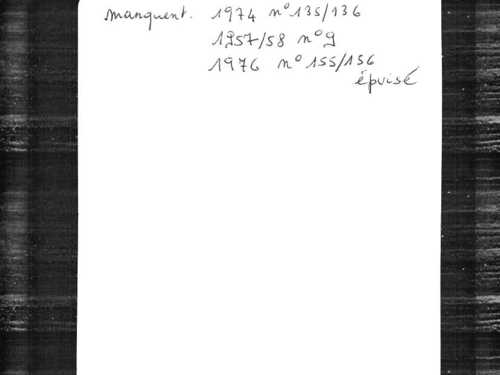 manquent. 1974 n° 135/136
1957/58 n° 9
1976 n° 155/156
épuisé